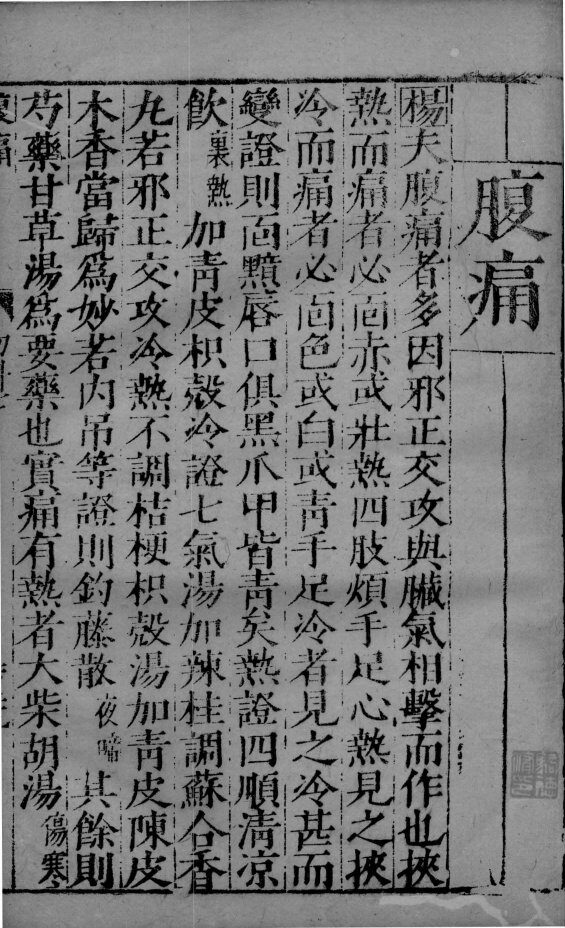 腹痛
楊夫腹痛者多因邪正交攻與臟氣相擊而作也挾
熱而痛者必面赤或壯熱四肢煩手足心熱見之挾
冷而痛者必面色或白或青手足冷者見之冷甚而
變證則面黯唇口俱黑爪甲皆青矣熱證四順清凉
飲裏熱加青皮枳殻冷證七氣湯加辣桂調蘇合香
丸若邪正交攻冷熱不調桔梗枳殻湯加青皮陳皮
木香當歸爲妙若内吊等證則釣藤散夜啼其餘則
芍藥甘草湯爲要藥也實痛有熱者大柴胡湯傷寒
腹痛